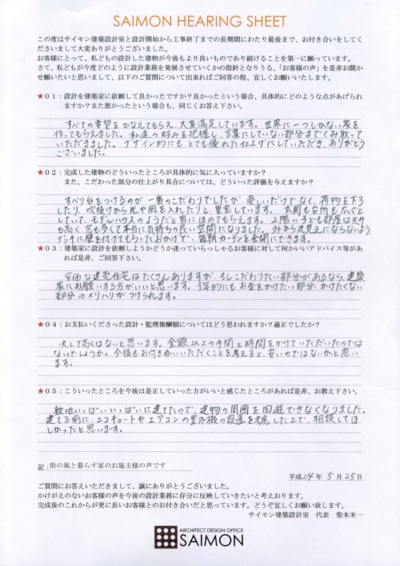 SAIMON HEARING SHEET
この度はサイモン建築設計室と設計開始から工事終了までの長期間にわたり最後まで、お付き合いをしてく
ださいまして大変ありがとうございました。
お客様にとって、私どもの設計した建物が今後もより良いものであり続けることを第一に願っています。
さて、私どもが今度どのように設計業務を発展させていくかの指針となりうる、「お客様の声」を是非お聞か
せ願いたいと思いまして、以下のご質問について出来ればご回答の程、宜しくお願いいたします。
★０１：設計を建築家に依頼して良かったですか？良かったという場合、具体的にどのような点があげられ
ますか？また悪かったという場合も、同じくお答え下さい。
すべての希望をかなえてもらえ、大変満足しています。世界に一つしかない家を
作ってもらえました。私達の好みを把握し、言葉にしていない部分までくみ取って
いただきました。デザイン的にも、とても優れた仕上げにしていただき、ありがとう
ございました。
★０２：完成した建物のどういったところが具体的に気に入っていますか？
また、こだわった部分の仕上がり具合については、どういった評価を与えますか？
すべり台をつけるのが一番のこだわりでしたが、楽しいだけでなく、荷物を下ろ
したり、吹抜けから光や風を入れたりと、重宝しています。玄関も台所も広々と
していて、モデルハウスのようだと皆にほめてもらえます。2階のうども部屋は天井
も高く、窓も多くて本当に気持ちの良い空間になりました。外から丸見えにならないよう
デッキに壁を付けてもらったおかげで、毎朝カーテンを全開にできます。
★０３：建築家に設計を依頼しようかどうか迷っていらっしゃるお客様に対して何かいいアドバイス等があ
れば是非、ご回答下さい。
安価な建売住宅はたくさんありますが、もしこだわりたい部分があるなら、建築
家にお願いする方がいいと思います。予算的にもお金をかけたい部分、かけたくない
部分のメリハリがつけられます。
★０４：お支払いくださった設計・監理報酬額についてはどう思われますか？適正でしたか？
決して高くはないと思います。金額以上の手間と時間をかけていただいたのでは
ないでしょうか。今後もお付き合いいただくことを考えると、安いのではないかと思い
ます。
★０５：こういったところを今後は是正していった方がいいと感じたところがあれば是非、お教え下さい。
敷地いっぱいいっぱいに建てたので、建物の周囲を回遊できなくなりました。
建てる前に、エコキュートやエアコンの室外機の設置を考慮した上で、相談してほ
しかったと思います。
記：街の風と暮らす家のお施主様の声です
平成24年 5月 25日
ご質問にお答えいただきまして、誠にありがとうございました。
かけがえのないお客様の声を今後の設計業務に存分に反映していきたいと考えおります。
完成後のこれからが更に長いお客様とのお付き合いだと思っています。どうぞ宜しくお願い致します。
サイモン建築設計室　代表　柴本米一
ARCHITECT DESIGN OFFICE
SAIMON